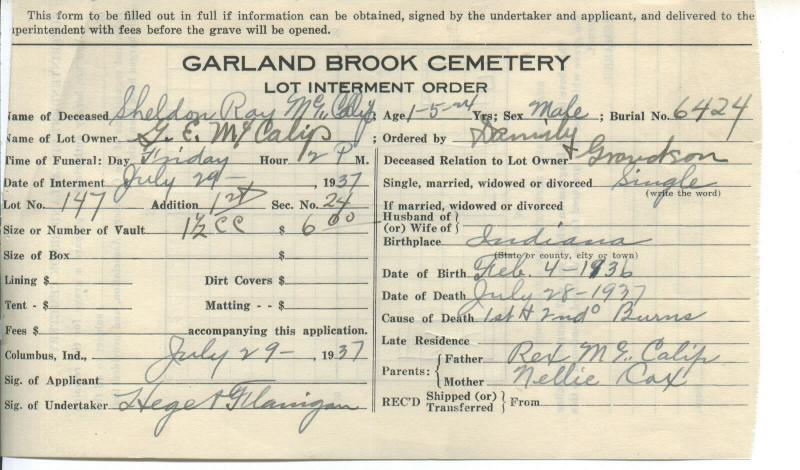 This form to be filled out in full if information can be obtained, signed by the undertaker and applicant, and delivered to the
uperintendent with fees before the grave will be opened.
GARLAND BROOK CEMETERY
LOT INTERMENT ORDER
Name of Deceased Sheldon Ray McCalip; Age 1-5-24 Yrs; Sex Male; Burial No. 6424
Name of Lot Owner G. E. McCalip; Ordered by Family
Time of Funeral: Day Friday Hour 2 P M.
Deceased Relation to Lot Owner Grandson
Date of Interment July 29- , 1937
Single, married, widowed or divorced Single
(write the word)
Lot No. 147 Addition 1st Sec. No. 24
If married, widowed or divorced
Husband of }
(or) Wife of }
Size or Number of Vault 1½ CC $ 6.00
Birthplace Indiana
(State or county, city or town)
Size of Box $
Date of Birth Feb. 4-1936
Lining $ Dirt Covers $
Date of Death July 28-1937
Tent - $ Matting - - $
Cause of Death 1st & 2nd° Burns
Fees $ accompanying this application.
Late Residence
Columbus, Ind., July 29- , 1937
Parents: { Father Rex McCalip
Mother Nellie Cox
Sig. of Applicant
Sig. of Undertaker Hege & Flanigan
REC'D Shipped (or) Transferred } From